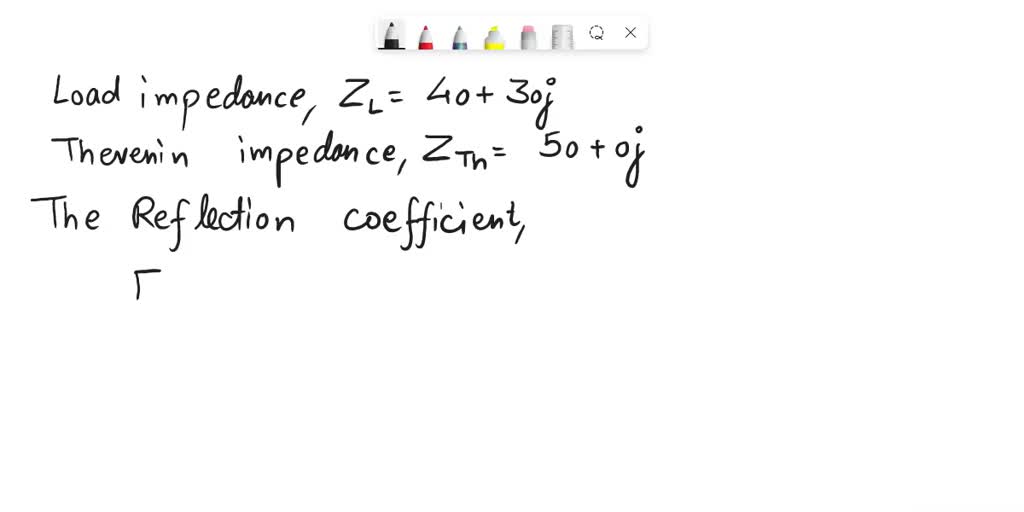 Load impedance, ZL = 40 + 30j
Thevenin impedance, ZTh = 50 + 0j
The Reflection coefficient,
Γ